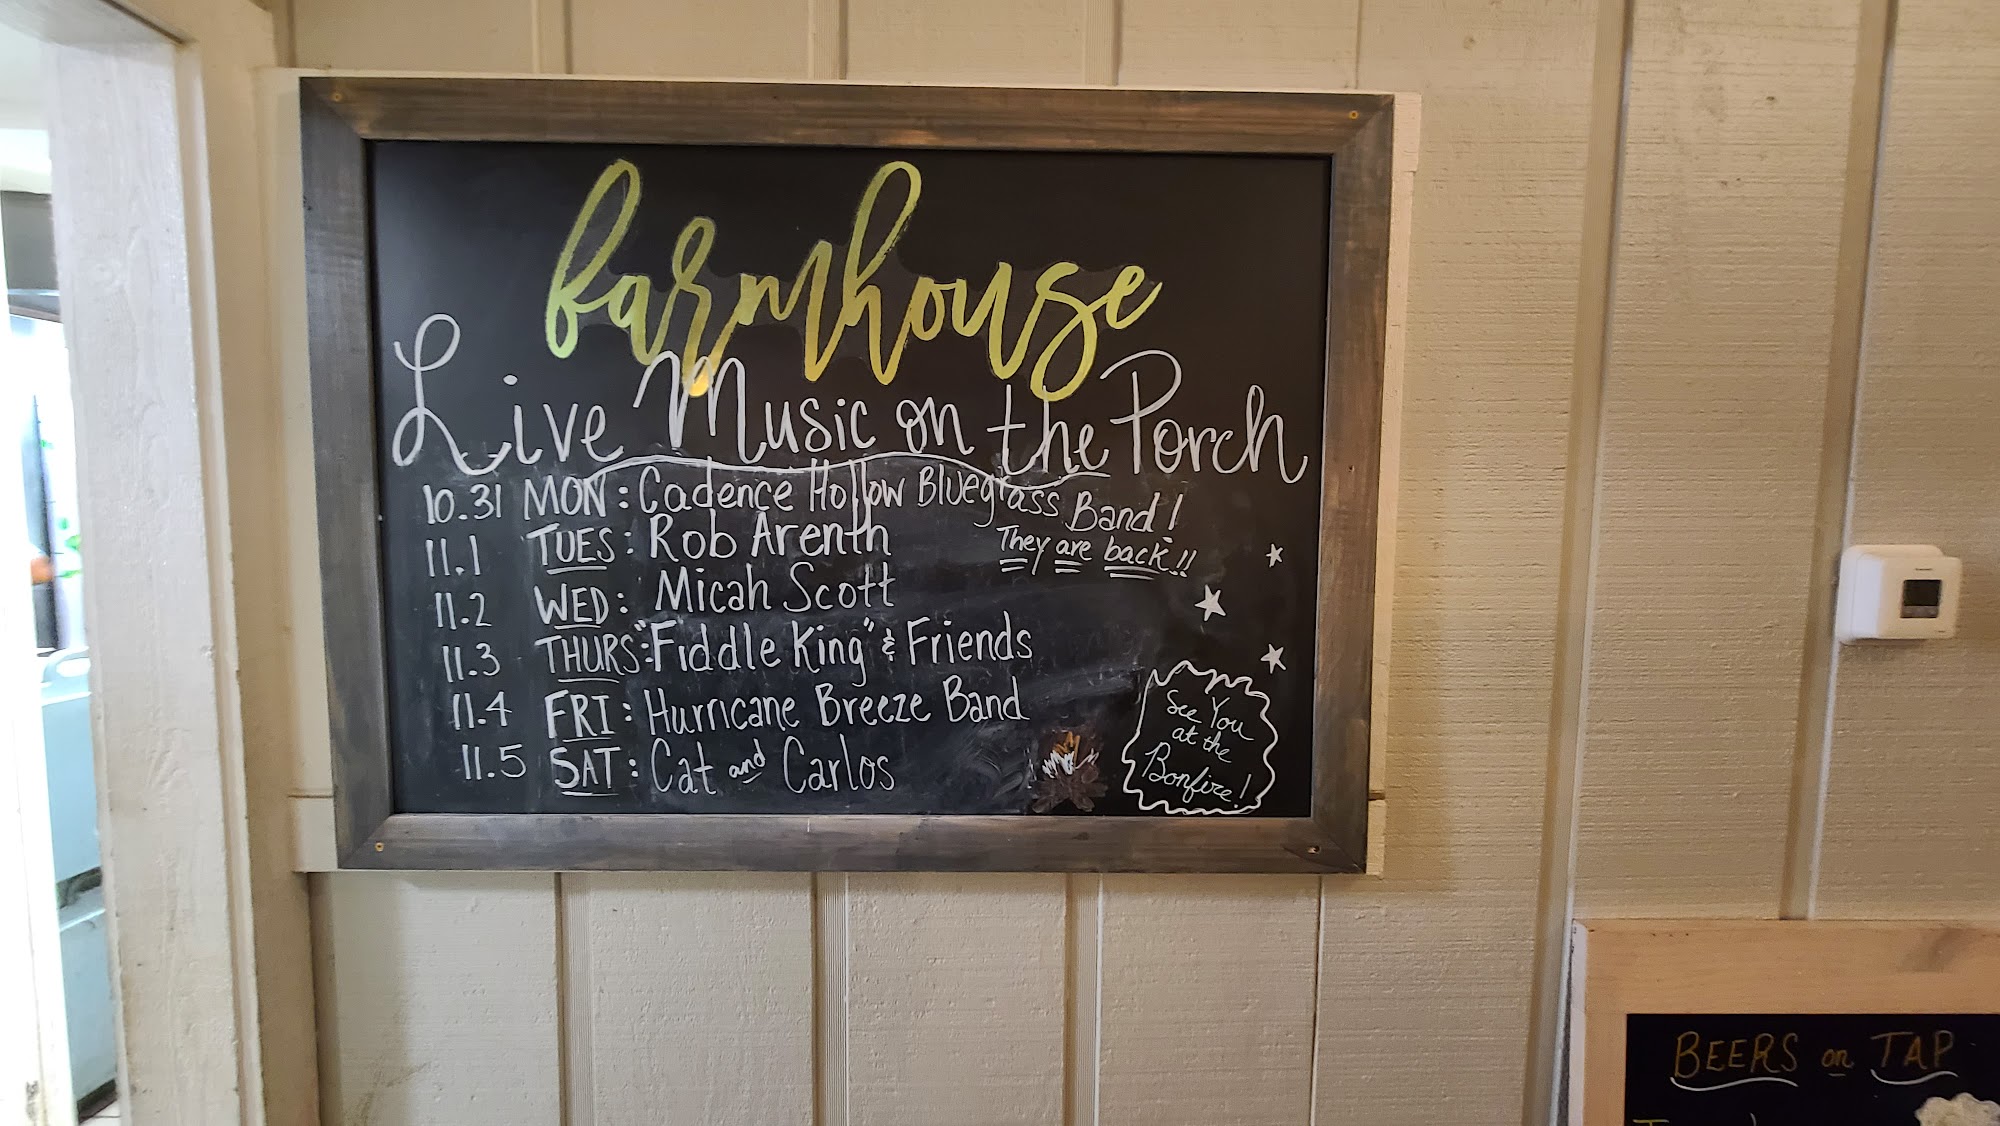 farmhouse
Live Music on the Porch
10.31 MON: Cadence Hollow Bluegrass Band!
They are back!!
11.1 TUES: Rob Arenth
11.2 WED: Micah Scott
11.3 THURS: "Fiddle King" & Friends
11.4 FRI: Hurricane Breeze Band
11.5 SAT: Cat and Carlos
See You
at the
Bonfire!
BEERS on TAP